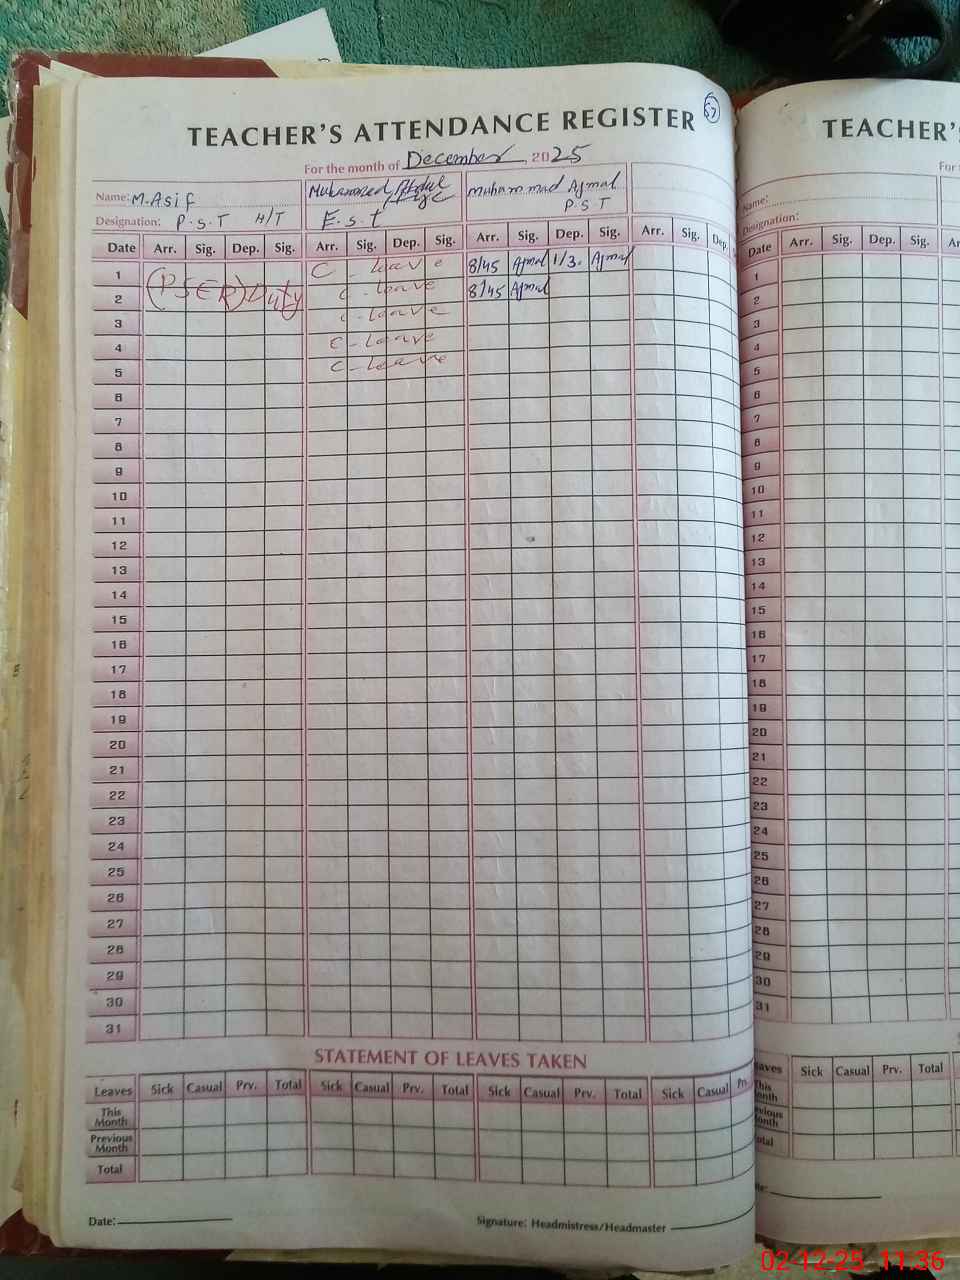 57
TEACHER'S ATTENDANCE REGISTER
For the month of December, 2025
Name: M.Asif Muhammad Abdul muhammad Ajmal
Designation: P.S.T H/T E.S.t P.S.T
Date Arr. Sig. Dep. Sig. Arr. Sig. Dep. Sig. Arr. Sig. Dep. Sig. Arr. Sig. Dep.
1 C-leave 8/45 Ajmal 1/3. Ajmal
(PSER) Duty
2 C-leave 8/45 Ajmal
3 C-leave
4 C-leave
5 C-leave
6
7
8
9
10
11
12
13
14
15
16
17
18
19
20
21
22
23
24
25
26
27
28
29
30
31
STATEMENT OF LEAVES TAKEN
Leaves Sick Casual Prv. Total Sick Casual Prv. Total Sick Casual Prv. Total Sick Casual Prv.
This Month
Previous Month
Total
Date: Signature: Headmistress/Headmaster
TEACHER'S
For
Name:
Designation:
Date Arr. Sig. Dep. Sig. Ar
1
2
3
4
5
6
7
8
9
10
11
12
13
14
15
16
17
18
19
20
21
22
23
24
25
26
27
28
29
30
31
eaves Sick Casual Prv. Total
This
onth
vious
onth
otal
te:
02-12-25 11:36